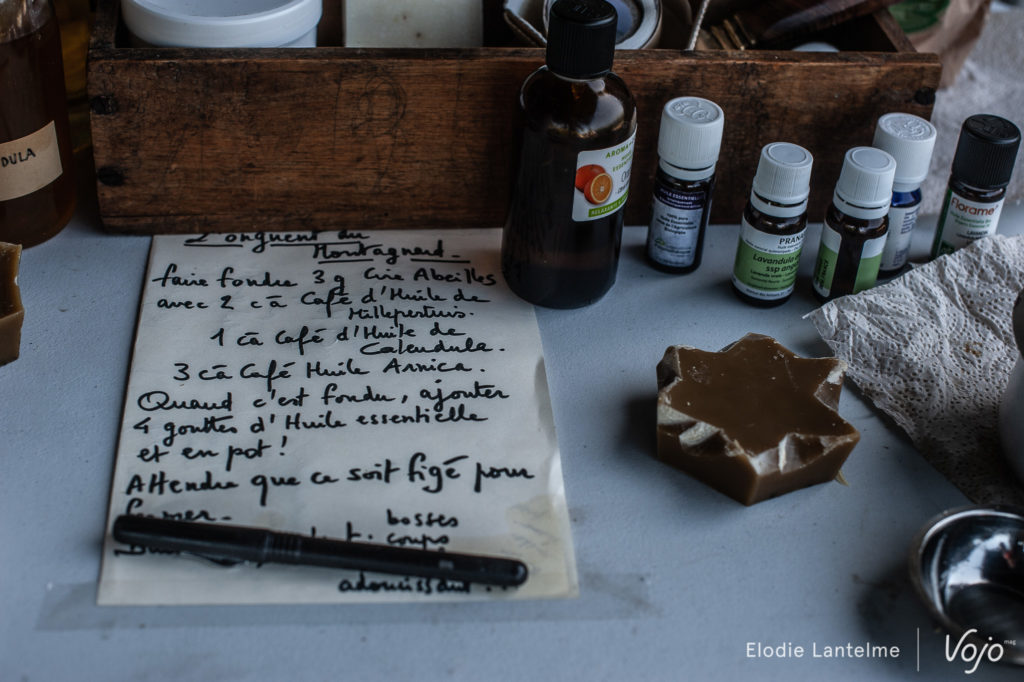 DULA
L'onguent du
Montagnard.
faire fondre 3 g Cire Abeilles
avec 2 c à Café d'Huile de
Millepertuis.
1 c à Café d'Huile de
Calendula.
3 c à Café Huile Arnica.
Quand c'est fondu, ajouter
4 gouttes d'Huile essentielle
et en pot !
Attendre que ce soit figé pour
fermer.
bosses
coups
adoucissant
AROMA
RELAXANTE
HUILE ESSENTIELLE
PRANA
Lavandula
ssp ang
Florame
Elodie Lantelme
Vojo mag